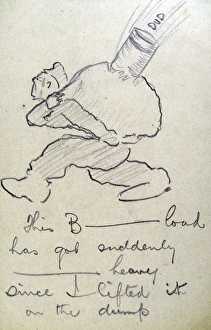 DUD
This B——— load
has got suddenly
——— heavy.
since I lifted it
on the dump